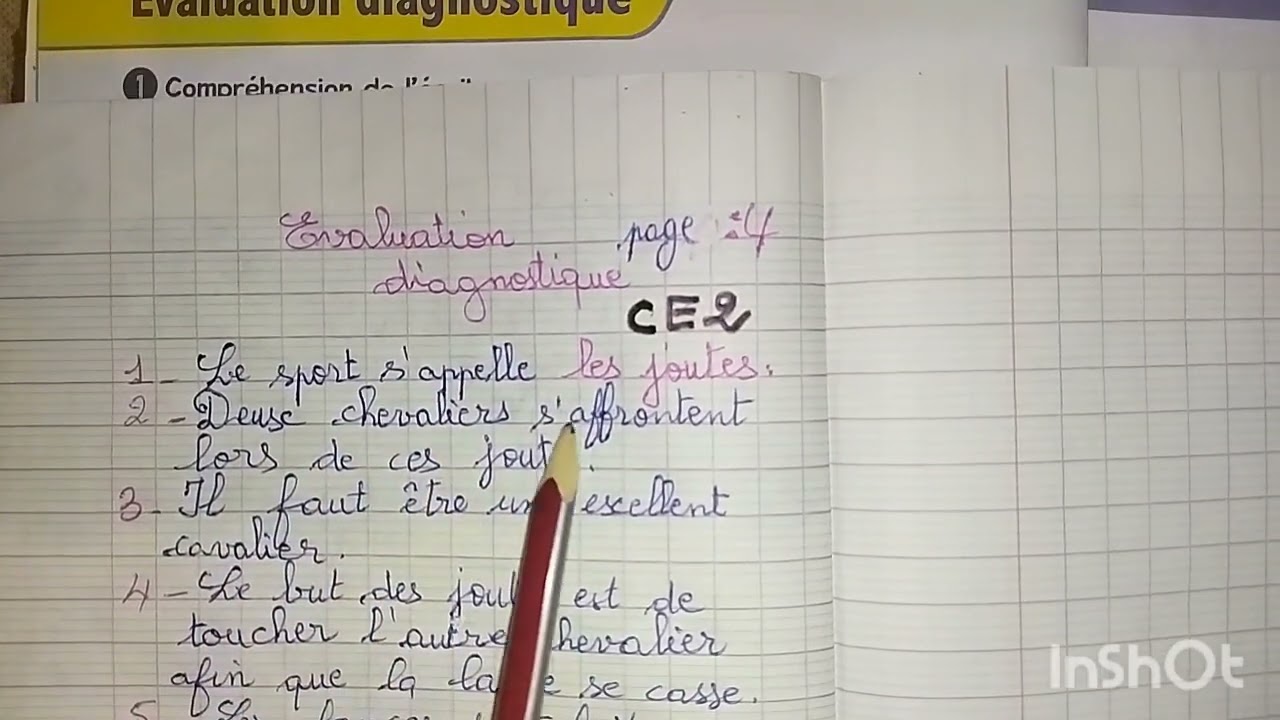 Evaluation diagnostique
1 Compréhension de
Evaluation page :4
diagnostique
CE2
1 - Le sport s'appelle les joutes.
2 - Deux chevaliers s'affrontent
lors de ces
3 - Il faut être un excellent
cavalier.
4 - Le but des est de
toucher l'autre chevalier
afin que la se casse.
5
InShOt